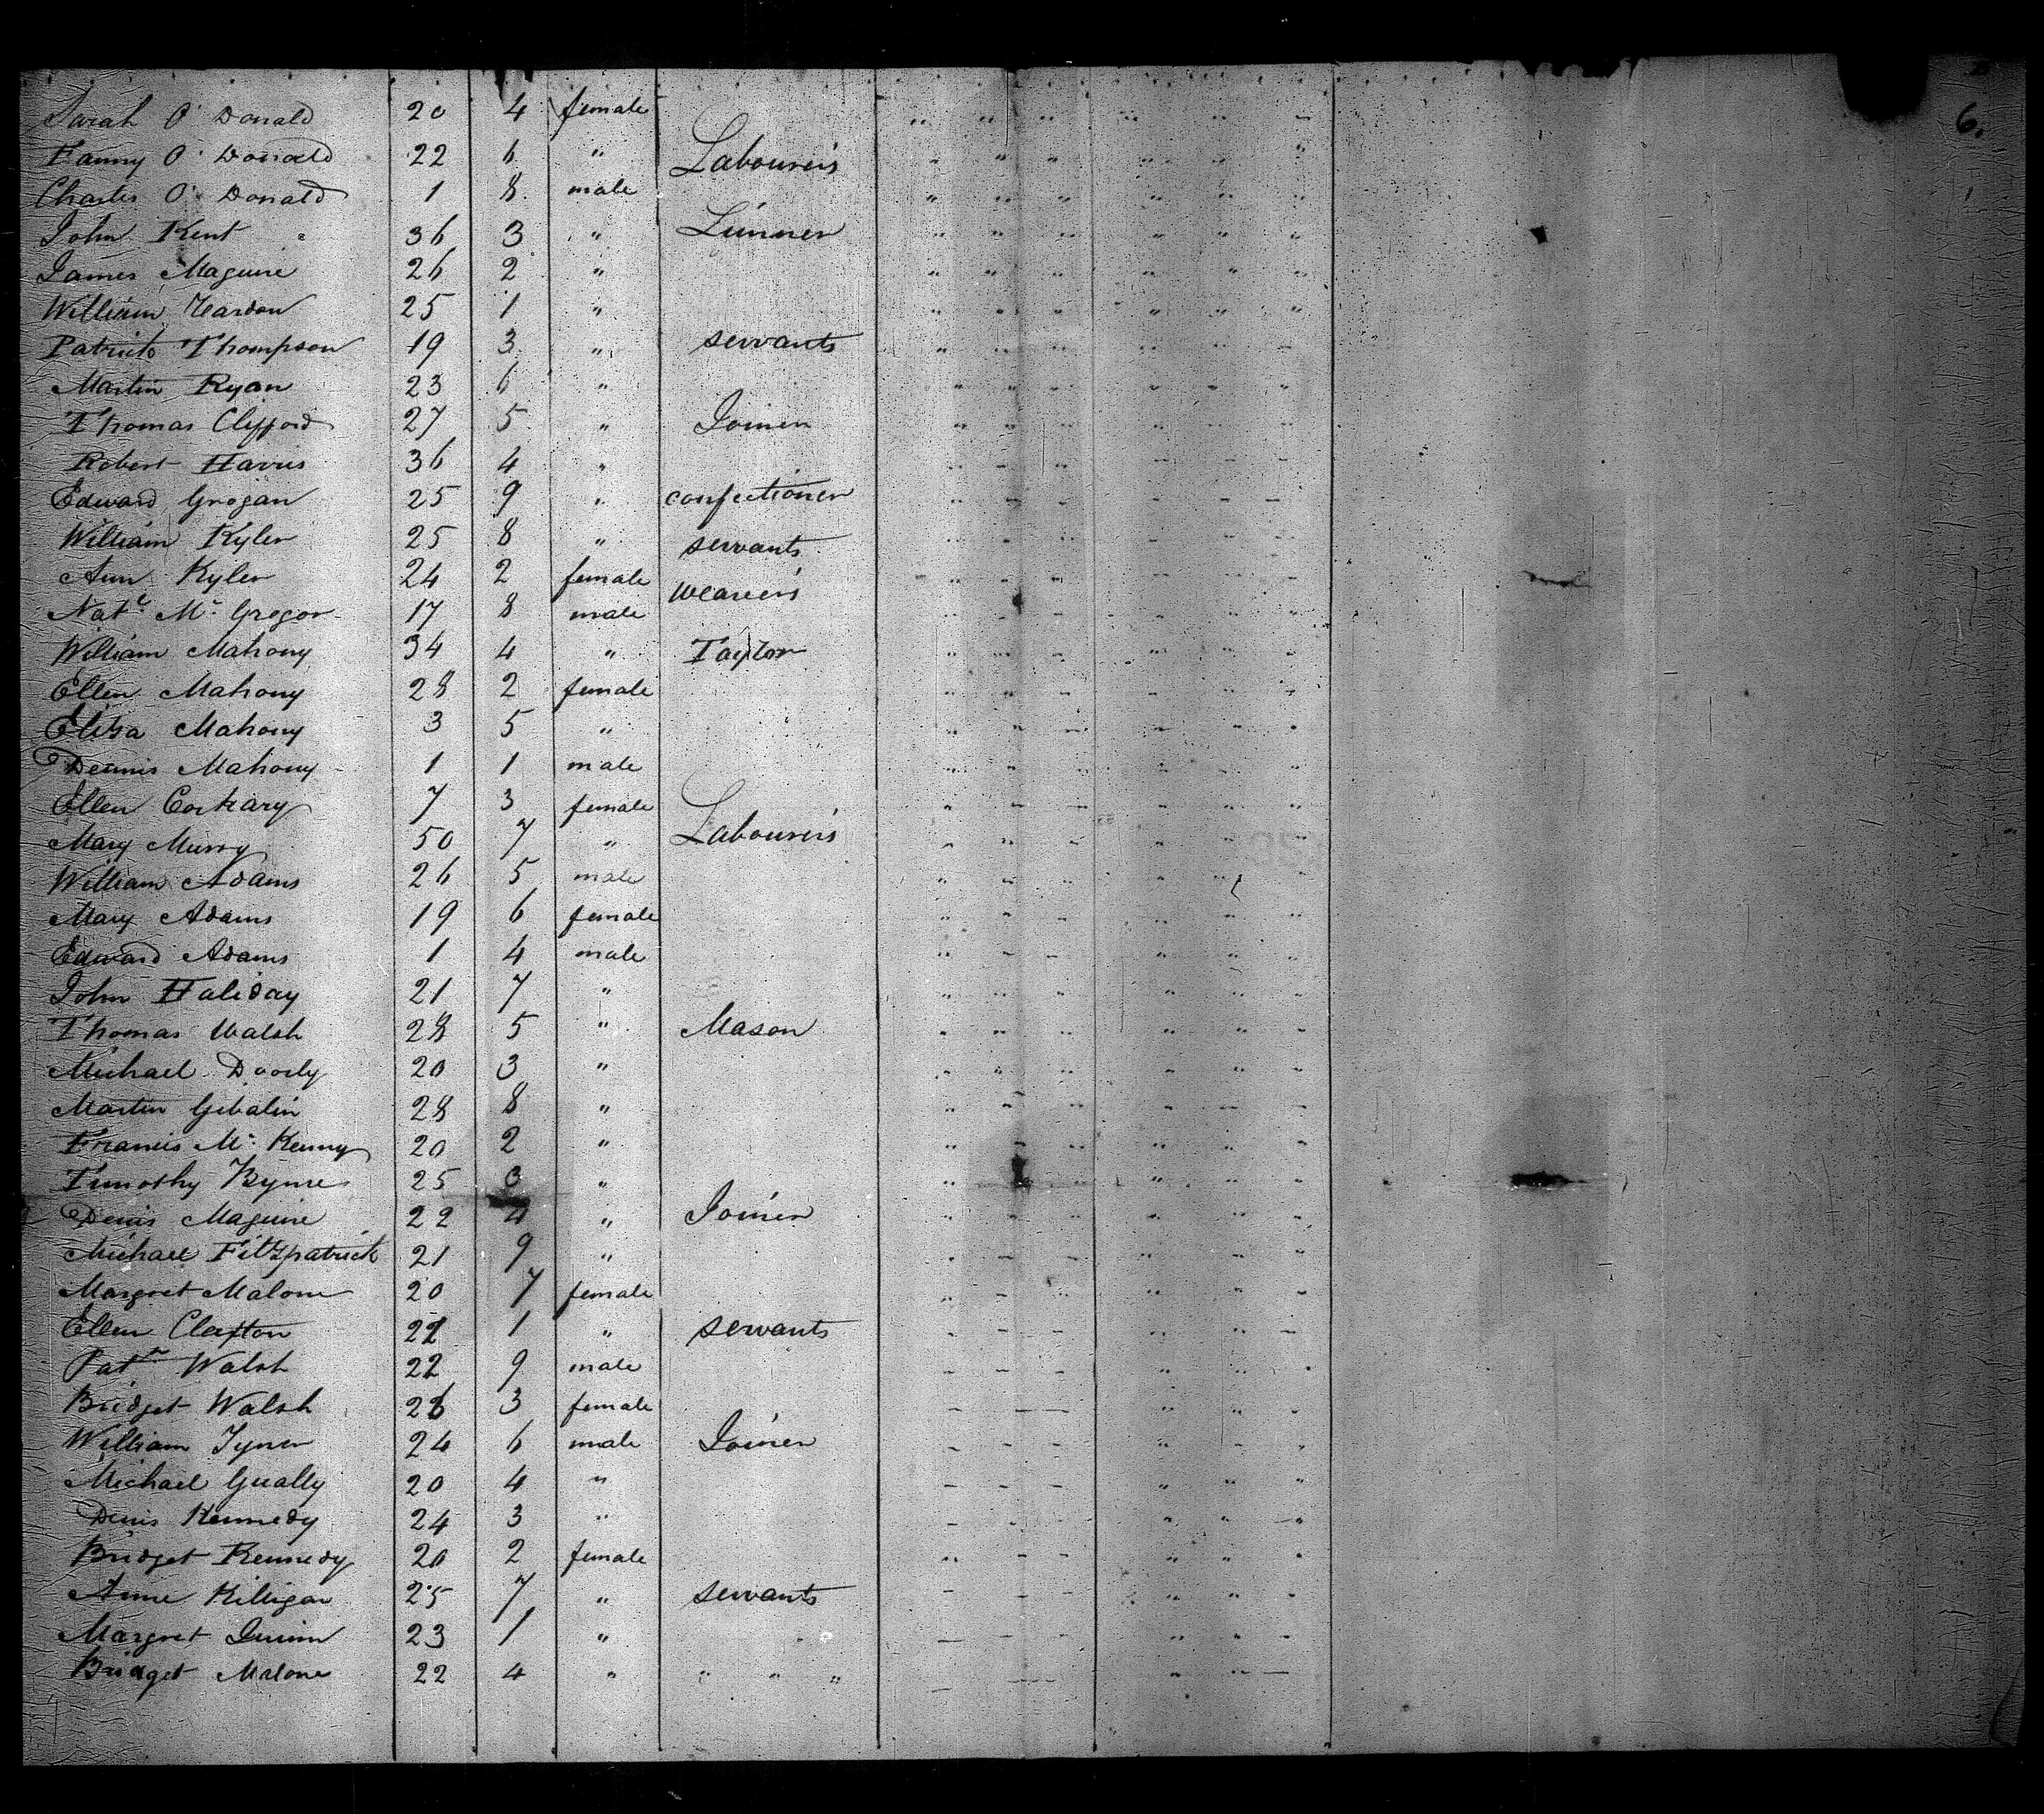 6.
Sarah O' Donald 20 4 female
Fanny O' Donald 22 6 " Labourers
Charles O' Donald 1 8 male
John Kent 36 3 "
James Maguire 26 2 "
William 25 1 "
Patrick Thompson 19 3 " servants
Martin Ryan 23 6 "
Thomas Clifford 27 5 " Joiner
Robert Harris 36 4 "
Edward Grogan 25 9 " confectioner
William Kyler 25 8 " servants
Ann Kyler 24 2 female weavers
Natl. Mc. Gregor 17 8 male
William Mahony 34 4 " Taylor
Ellen Mahony 28 2 female
Eliza Mahony 3 5 "
Dennis Mahony 1 1 male
Ellen Corkary 7 3 female
Mary Murry 50 7 " Labourers
William Adams 26 5 male
Mary Adams 19 6 female
Edward Adams 1 4 male
John Haliday 21 7 "
Thomas Walsh 28 5 " Mason
Michael Doorly 20 3 "
Martin Gibalin 28 8 "
Francis Mc. Kenny 20 2 "
Timothy Byrne 25 3 "
Denis Maguire 22 4 " Joiner
Michael Fitzpatrick 21 9 "
Margret Malone 20 7 female
Ellen Clayton 1 " servants
Patk. Walsh 22 9 male
Bridget Walsh 26 3 female
William Tyner 24 6 male Joiner
Michael Gually 20 4 "
Denis Kennedy 24 3 "
Bridget Kennedy 20 2 female
Anne Killigan 25 7 " servants
Margret Quinn 23 1 "
Bridget Malone 22 4 " " " "